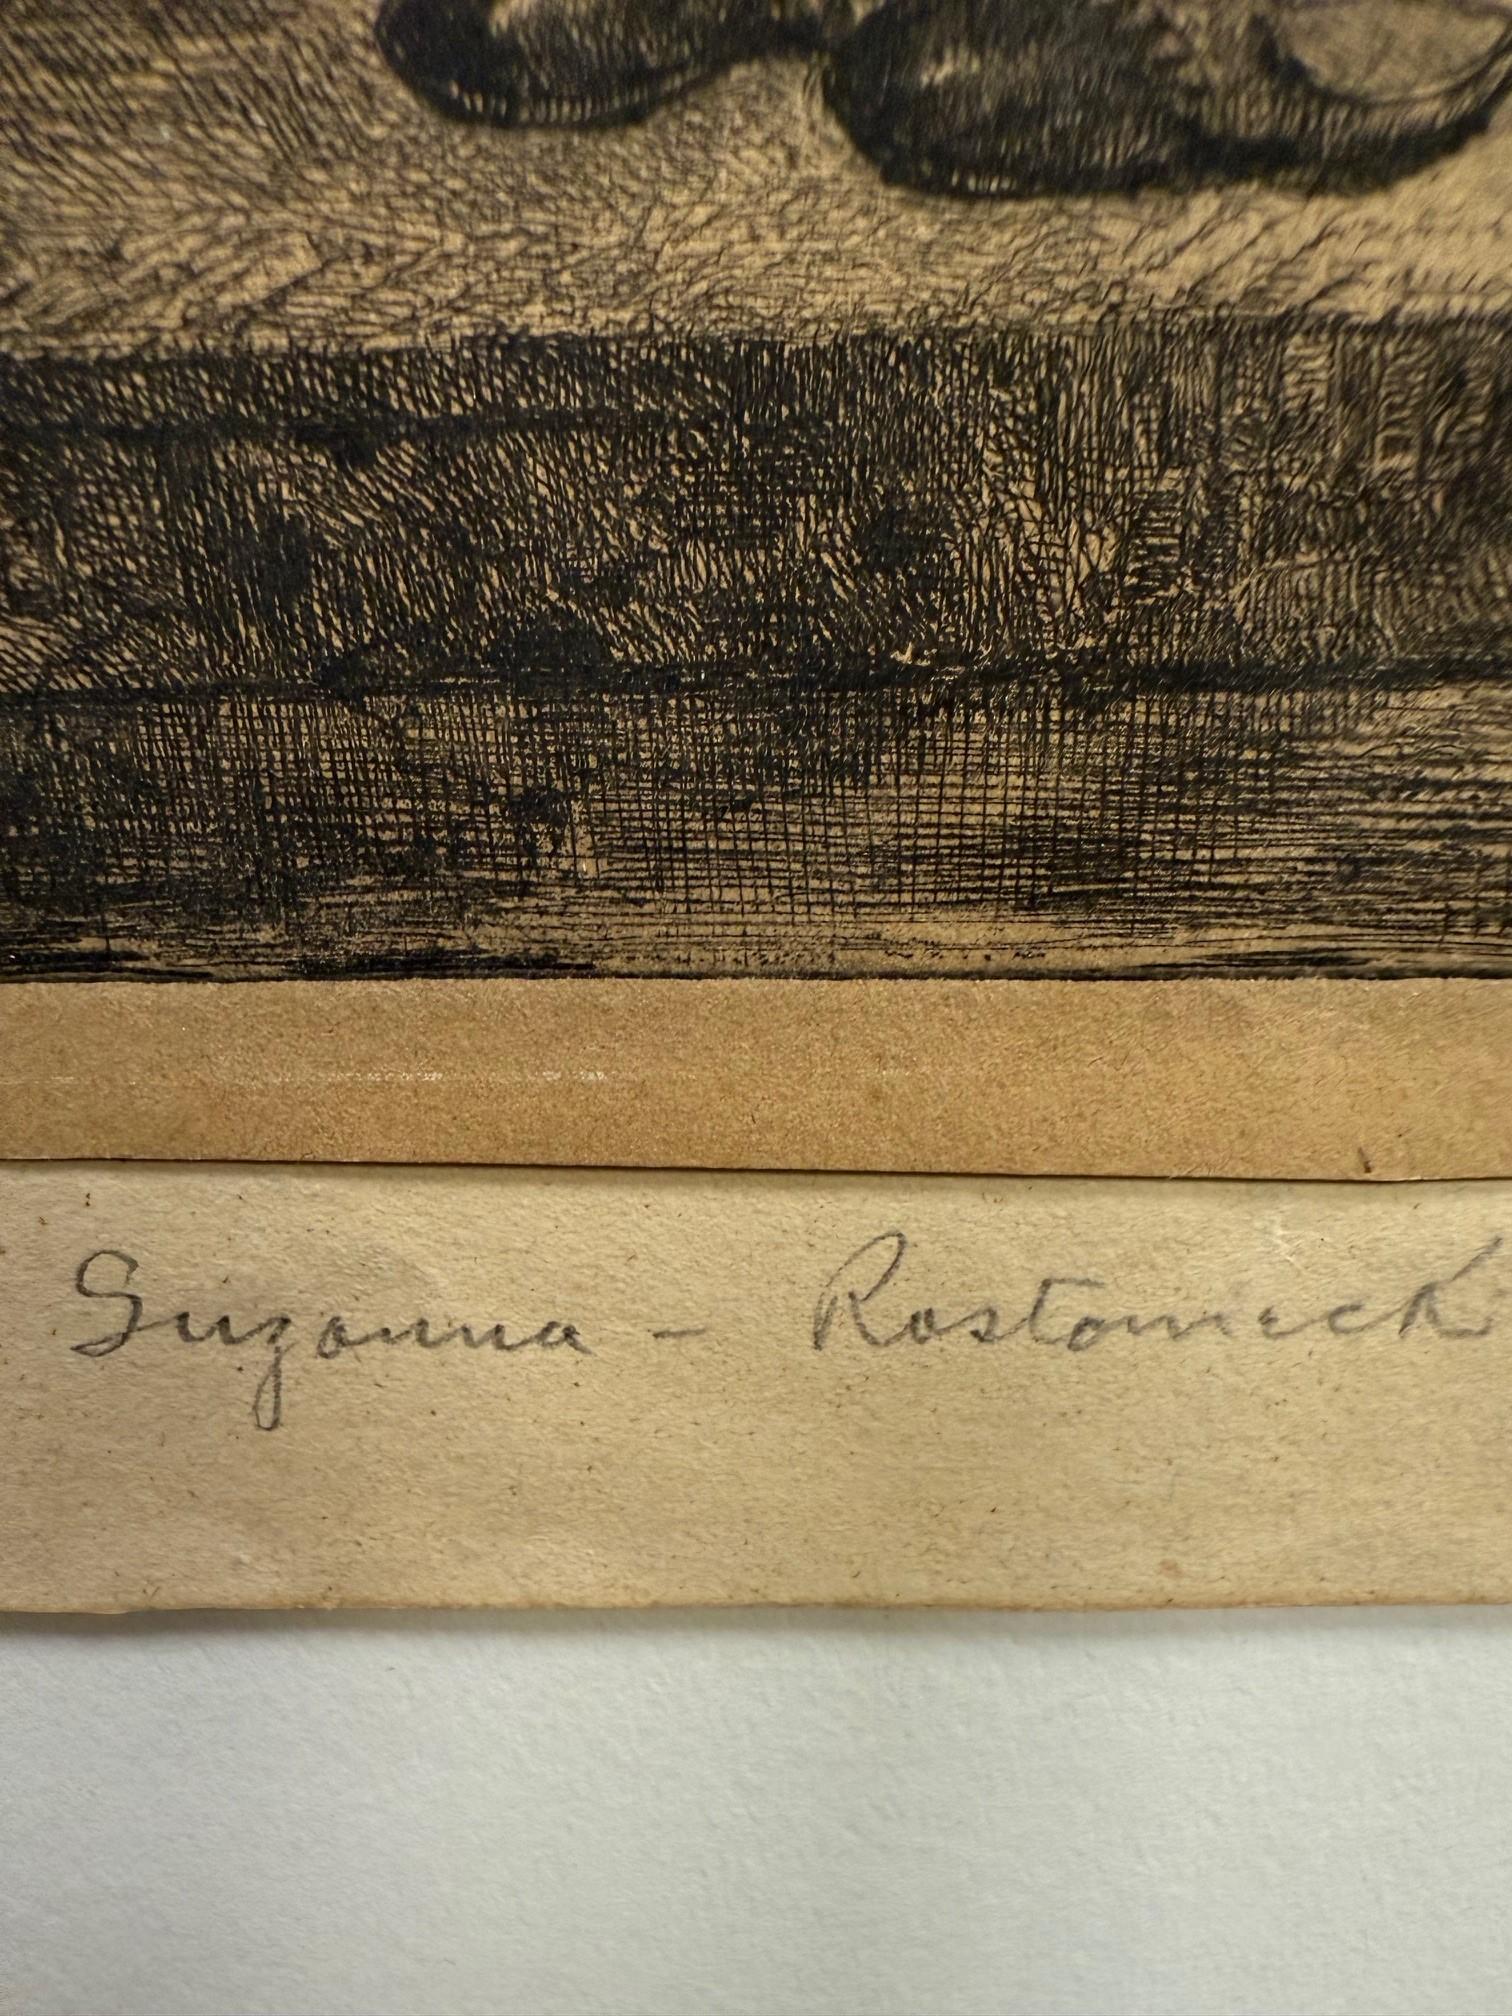 Suzanna - Rostomeck